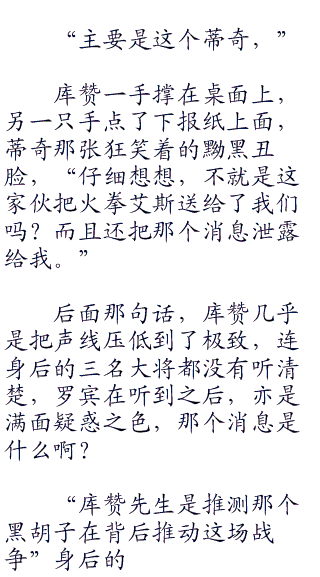 “主要是这个蒂奇，”
库赞一手撑在桌面上，
另一只手点了下报纸上面，
蒂奇那张狂笑着的黝黑丑
脸，“仔细想想，不就是这
家伙把火拳艾斯送给了我们
吗？而且还把那个消息泄露
给我。”
后面那句话，库赞几乎
是把声线压低到了极致，连
身后的三名大将都没有听清
楚，罗宾在听到之后，亦是
满面疑惑之色，那个消息是
什么啊？
“库赞先生是推测那个
黑胡子在背后推动这场战
争”身后的